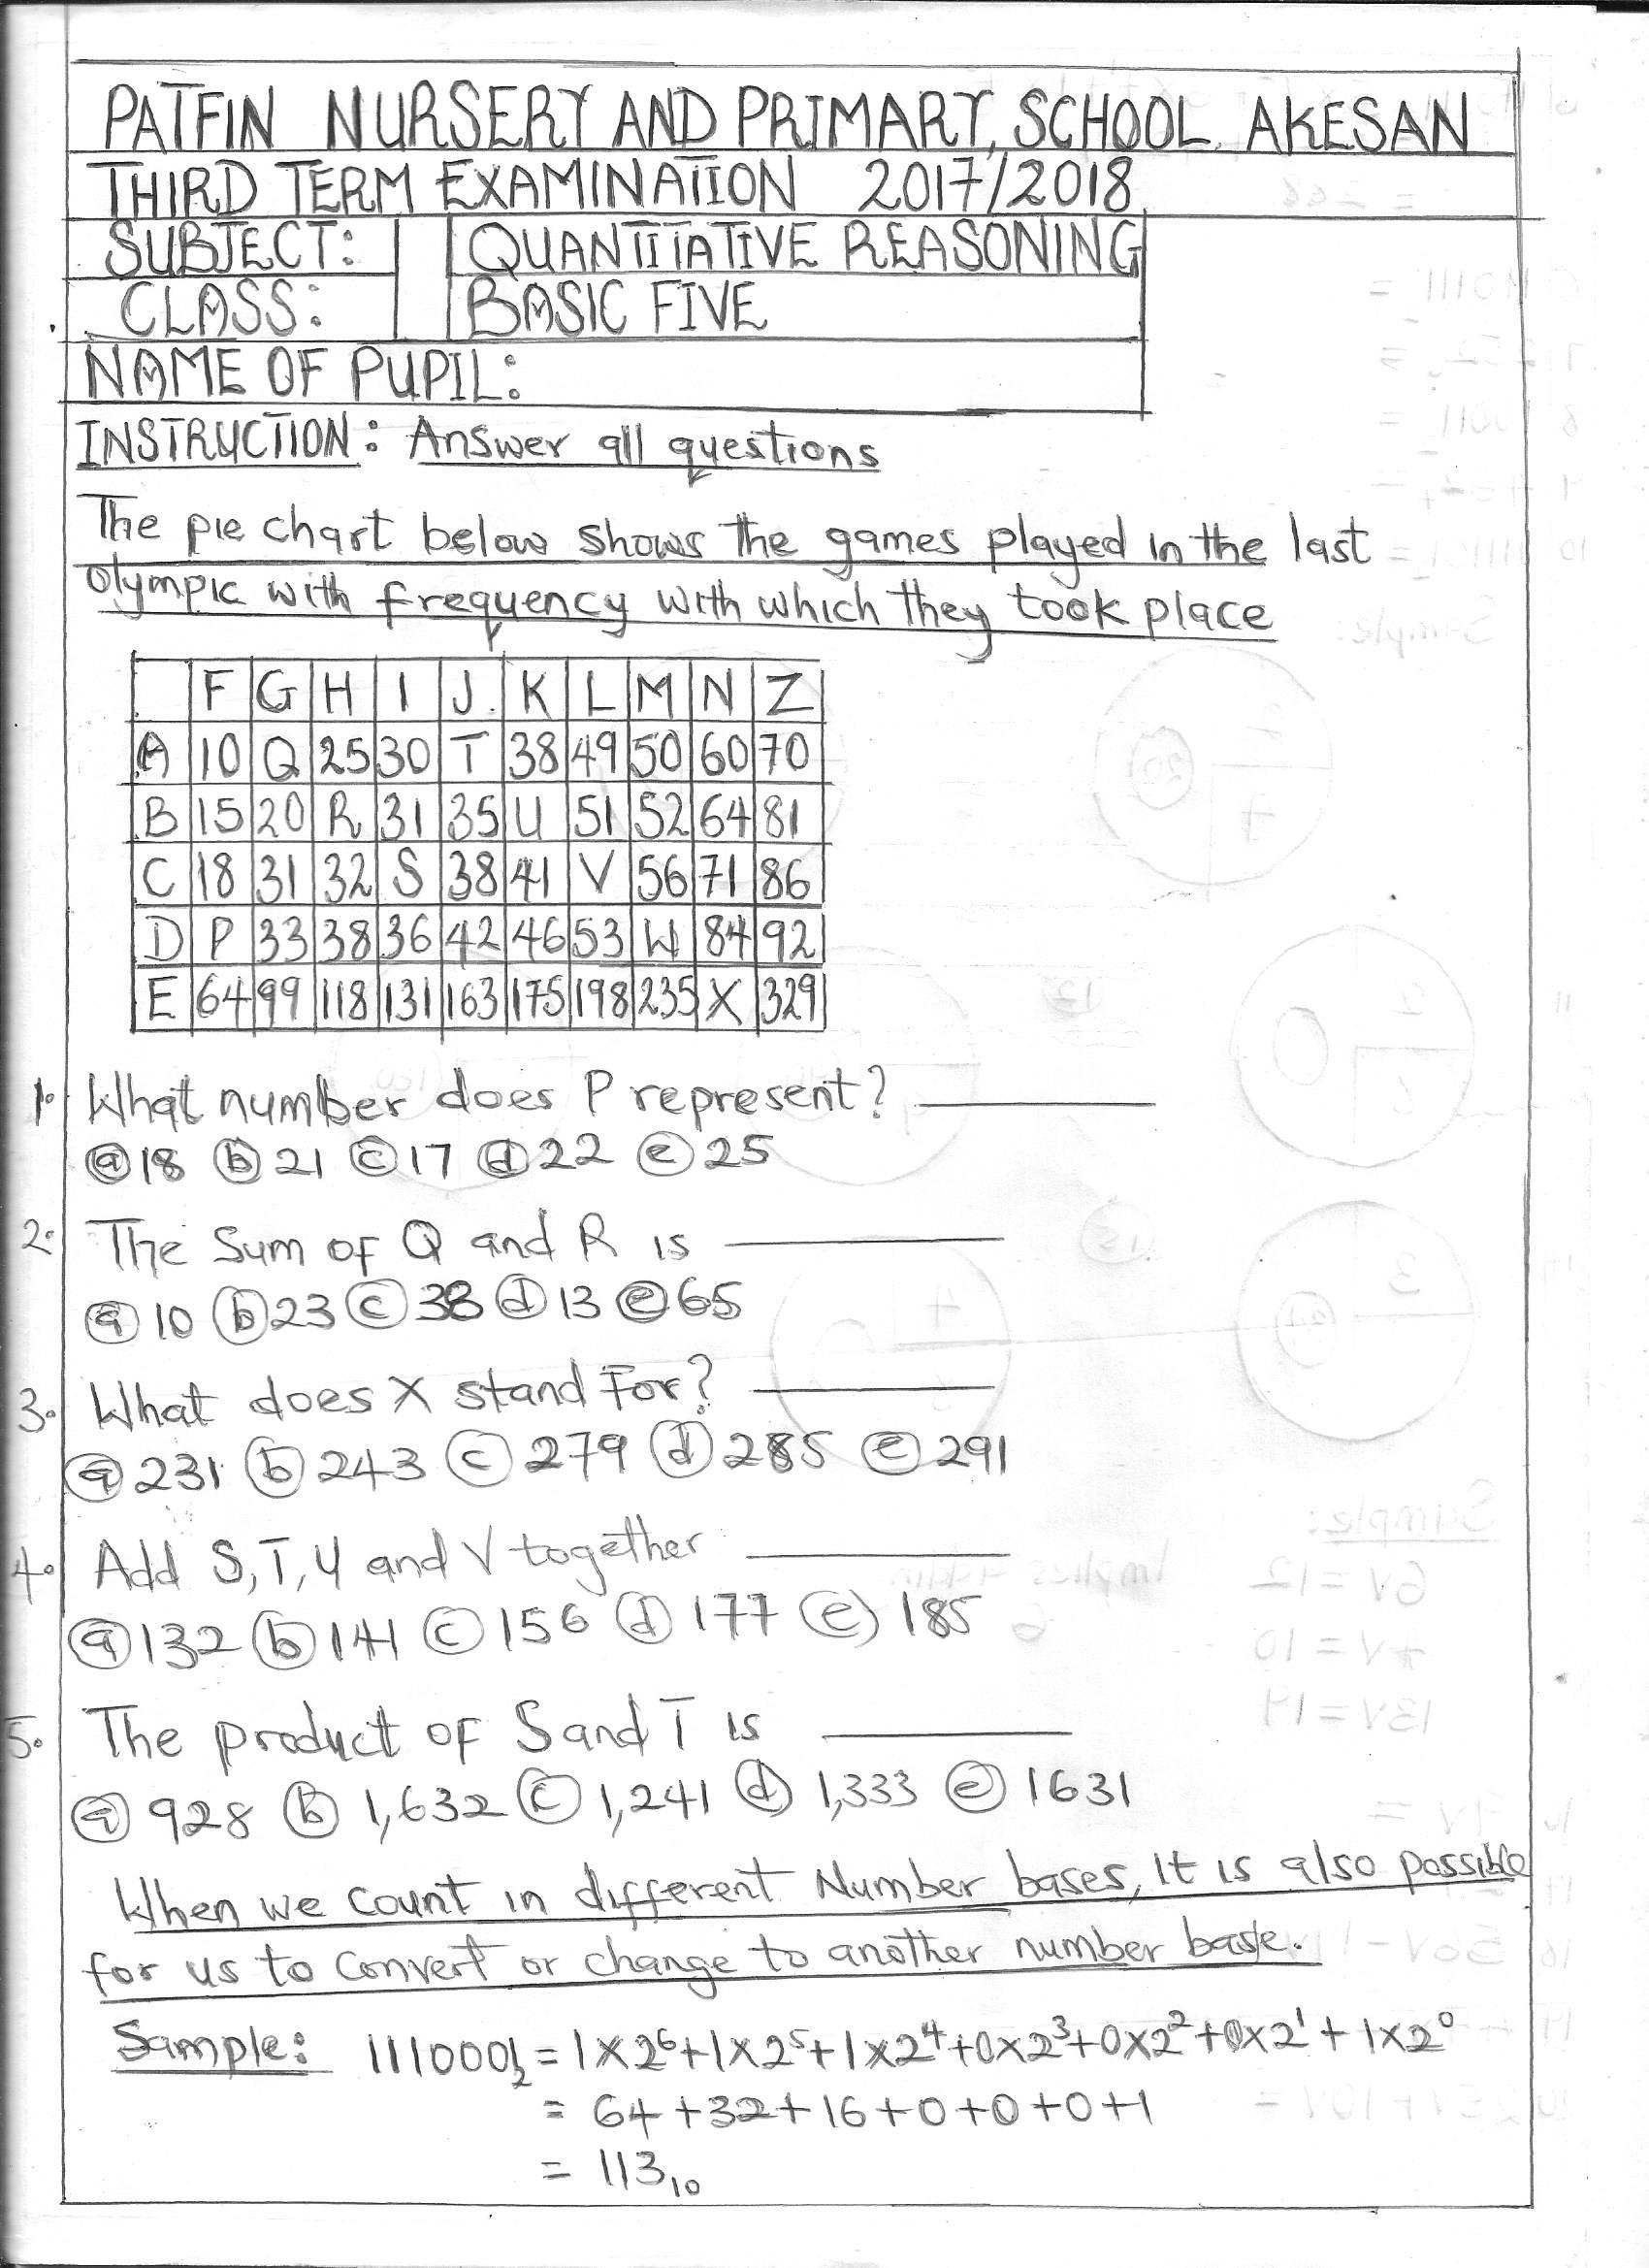 PATFIN NURSERY AND PRIMARY, SCHOOL, AKESAN
THIRD TERM EXAMINATION 2017/2018
SUBJECT: QUANTITATIVE REASONING
CLASS: BASIC FIVE
NAME OF PUPIL:
INSTRUCTION: Answer all questions
The pie chart below shows the games played in the last
olympic with frequency with which they took place
F G H I J K L M N Z
A 10 Q 25 30 T 38 49 50 60 70
B 15 20 R 31 35 U 51 52 64 81
C 18 31 32 S 38 41 V 56 71 86
D P 33 38 36 42 46 53 W 84 92
E 64 99 118 131 163 175 198 235 X 329
1. What number does P represent?
(a) 18 (b) 21 (c) 17 (d) 22 (e) 25
2. The Sum of Q and R is
(a) 10 (b) 23 (c) 38 (d) 13 (e) 65
3. What does X stand For?
(a) 231 (b) 243 (c) 279 (d) 285 (e) 291
4. Add S, T, U and V together
(a) 132 (b) 141 (c) 156 (d) 177 (e) 185
5. The product of S and T is
(a) 928 (b) 1,632 (c) 1,241 (d) 1,333 (e) 1631
When we count in different Number bases, it is also possible
for us to convert or change to another number base.
Sample: 1110001₂ = 1×2⁶+1×2⁵+1×2⁴+0×2³+0×2²+0×2¹+1×2⁰
= 64+32+16+0+0+0+1
= 113₁₀